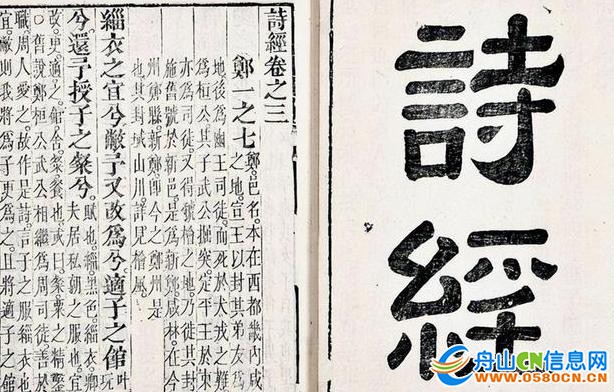 詩經
詩經卷之三
鄭一之七
鄭。邑名。本在西都畿內咸
之地。宣王以封其弟友爲
地後爲幽王司徒。而死於犬戎之難
爲桓公其子武公掘突。定平王於東
爲司徒。又得虢檜之地。乃徙其封
施舊號於新邑。是爲新鄭咸林。在今
州鄭縣。新鄭即今之鄭州是
也其封域山川。詳見檜風
緇衣之宜兮敝予又改爲兮適子之館
兮還予授子之粲兮。
賦也。緇黑色。緇衣卿
夫居私朝之服也。宜
改。更。適。之。館。舍。粲。粲也。或曰。粲。粟之精鑿
○舊說鄭桓公武公相繼爲周司徒善於
職。周人愛之。故作是詩言子之服緇衣也
宜。敝則我將爲子更爲之。且將適子
舟山CN信息网
www.0580CN.com